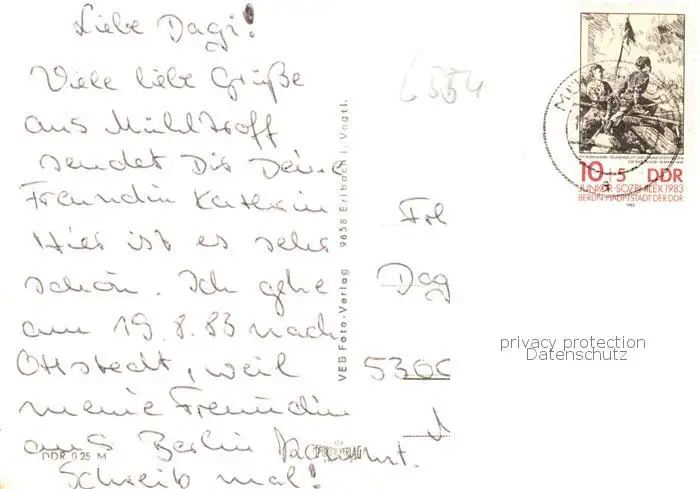 Liebe Dagi!
Viele liebe Grüße
aus Mühltroff
sendet Dir Deine
Freundin Kathrin
Hier ist es sehr
schön. Ich gehe
am 19.8.83 nach
Ottstedt, weil
meine Freundin
aus Berlin kommt.
Schreib mal!
DDR 0 25 M
VEB Foto-Verlag 9658 Erlbach i. Vogtl.
FOTO-VERLAG
Frl
Dag
5300
10+5 DDR
JUNIOR-SOZPHILEX 1983
BERLIN HAUPTSTADT DER DDR
1983
privacy protection
Datenschutz